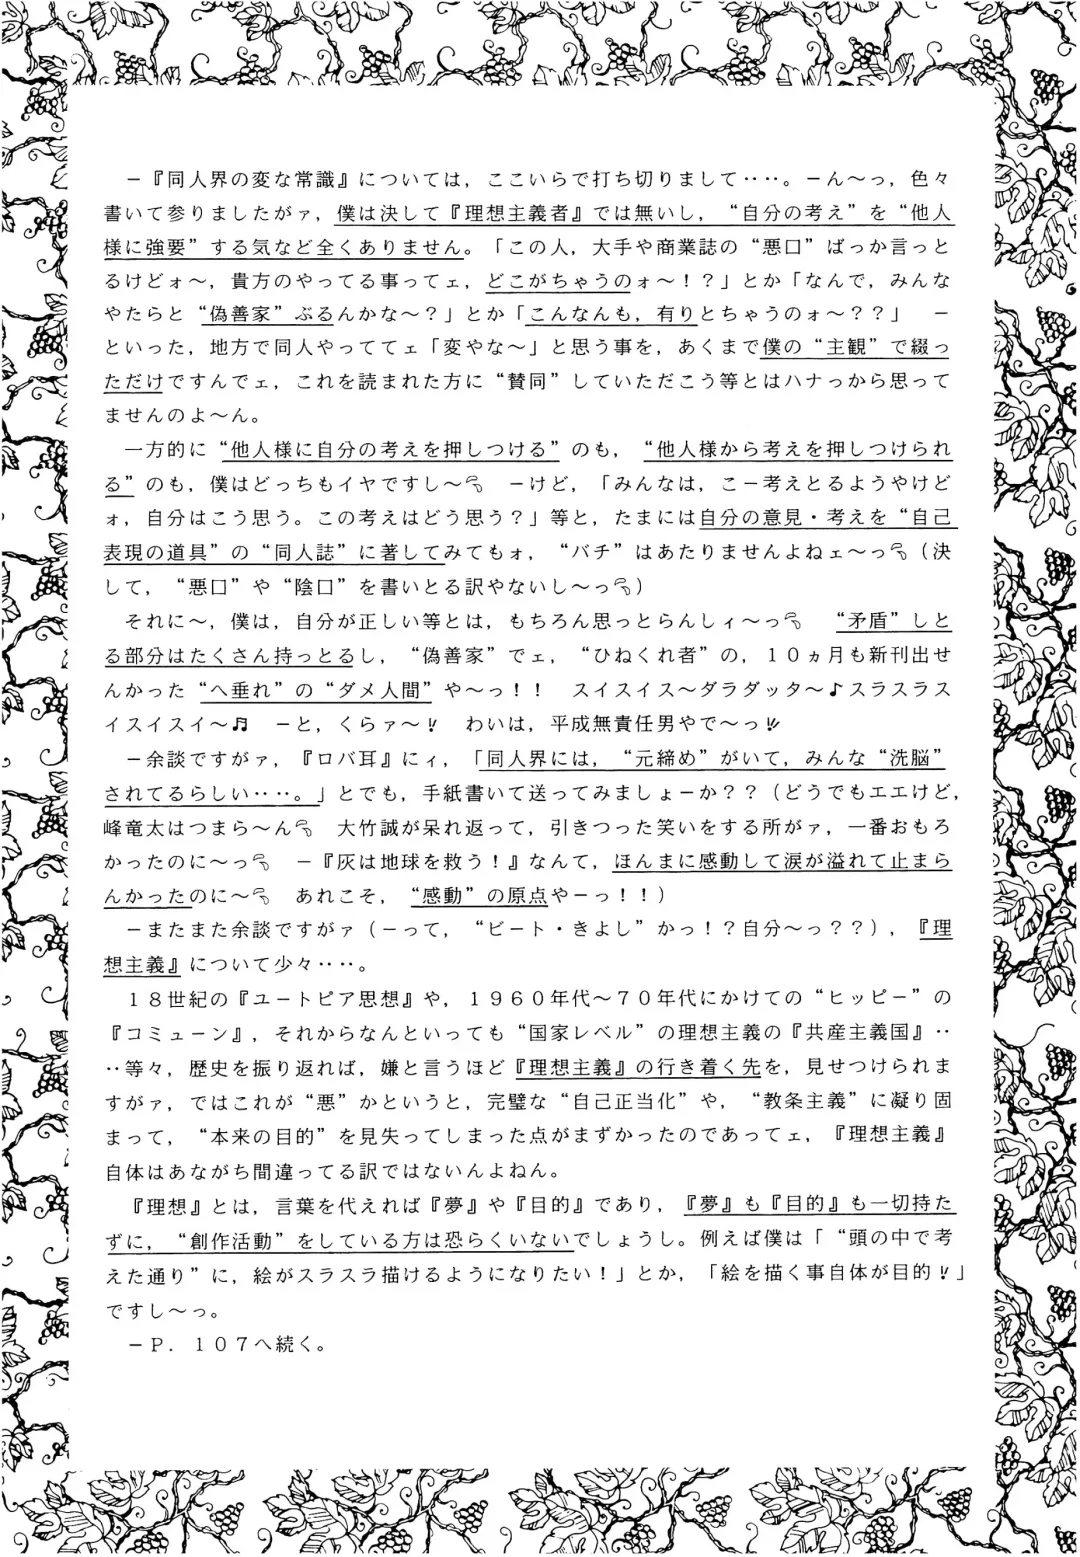 －『同人界の変な常識』については，ここいらで打ち切りまして‥‥。－ん～っ，色々
書いて参りましたがァ，僕は決して『理想主義者』では無いし，“自分の考え”を“他人
様に強要”する気など全くありません。「この人，大手や商業誌の“悪口”ばっか言っと
るけどォ～，貴方のやってる事ってェ，どこがちゃうのォ～！？」とか「なんで，みんな
やたらと“偽善家”ぶるんかな～？」とか「こんなんも，有りとちゃうのォ～？？」　－
といった，地方で同人やっててェ「変やな～」と思う事を，あくまで僕の“主観”で綴っ
ただけですんでェ，これを読まれた方に“賛同”していただこう等とはハナっから思って
ませんのよ～ん。
一方的に“他人様に自分の考えを押しつける”のも，“他人様から考えを押しつけられ
る”のも，僕はどっちもイヤですし～　－けど，「みんなは，こー考えとるようやけど
ォ，自分はこう思う。この考えはどう思う？」等と，たまには自分の意見・考えを“自己
表現の道具”の“同人誌”に著してみてもォ，“バチ”はあたりませんよねェ～っ（決
して，“悪口”や“陰口”を書いとる訳やないし～っ）
それに～，僕は，自分が正しい等とは，もちろん思っとらんしィ～っ　“矛盾”しと
る部分はたくさん持っとるし，“偽善家”でェ，“ひねくれ者”の，１０ヵ月も新刊出せ
んかった“へ垂れ”の“ダメ人間”や～っ！！　スイスイス～ダラダッタ～♪スラスラス
イスイスイ～♬　－と，くらァ～!!　わいは，平成無責任男やで～っ!!
－余談ですがァ，『ロバ耳』にィ，「同人界には，“元締め”がいて，みんな“洗脳”
されてるらしい‥‥。」とでも，手紙書いて送ってみましょーか？？（どうでもエエけど，
峰竜太はつまら～ん　大竹誠が呆れ返って，引きつった笑いをする所がァ，一番おもろ
かったのに～っ　－『灰は地球を救う！』なんて，ほんまに感動して涙が溢れて止まら
んかったのに～　あれこそ，“感動”の原点やーっ！！）
－またまた余談ですがァ（－って，“ビート・きよし”かっ！？自分～っ？？），『理
想主義』について少々‥‥。
１８世紀の『ユートピア思想』や，１９６０年代～７０年代にかけての“ヒッピー”の
『コミューン』，それからなんといっても“国家レベル”の理想主義の『共産主義国』‥
‥等々，歴史を振り返れば，嫌と言うほど『理想主義』の行き着く先を，見せつけられま
すがァ，ではこれが“悪”かというと，完璧な“自己正当化”や，“教条主義”に凝り固
まって，“本来の目的”を見失ってしまった点がまずかったのであってェ，『理想主義』
自体はあながち間違ってる訳ではないんよねん。
『理想』とは，言葉を代えれば『夢』や『目的』であり，『夢』も『目的』も一切持た
ずに，“創作活動”をしている方は恐らくいないでしょうし。例えば僕は「“頭の中で考
えた通り”に，絵がスラスラ描けるようになりたい！」とか，「絵を描く事自体が目的!!」
ですし～っ。
－Ｐ．１０７へ続く。